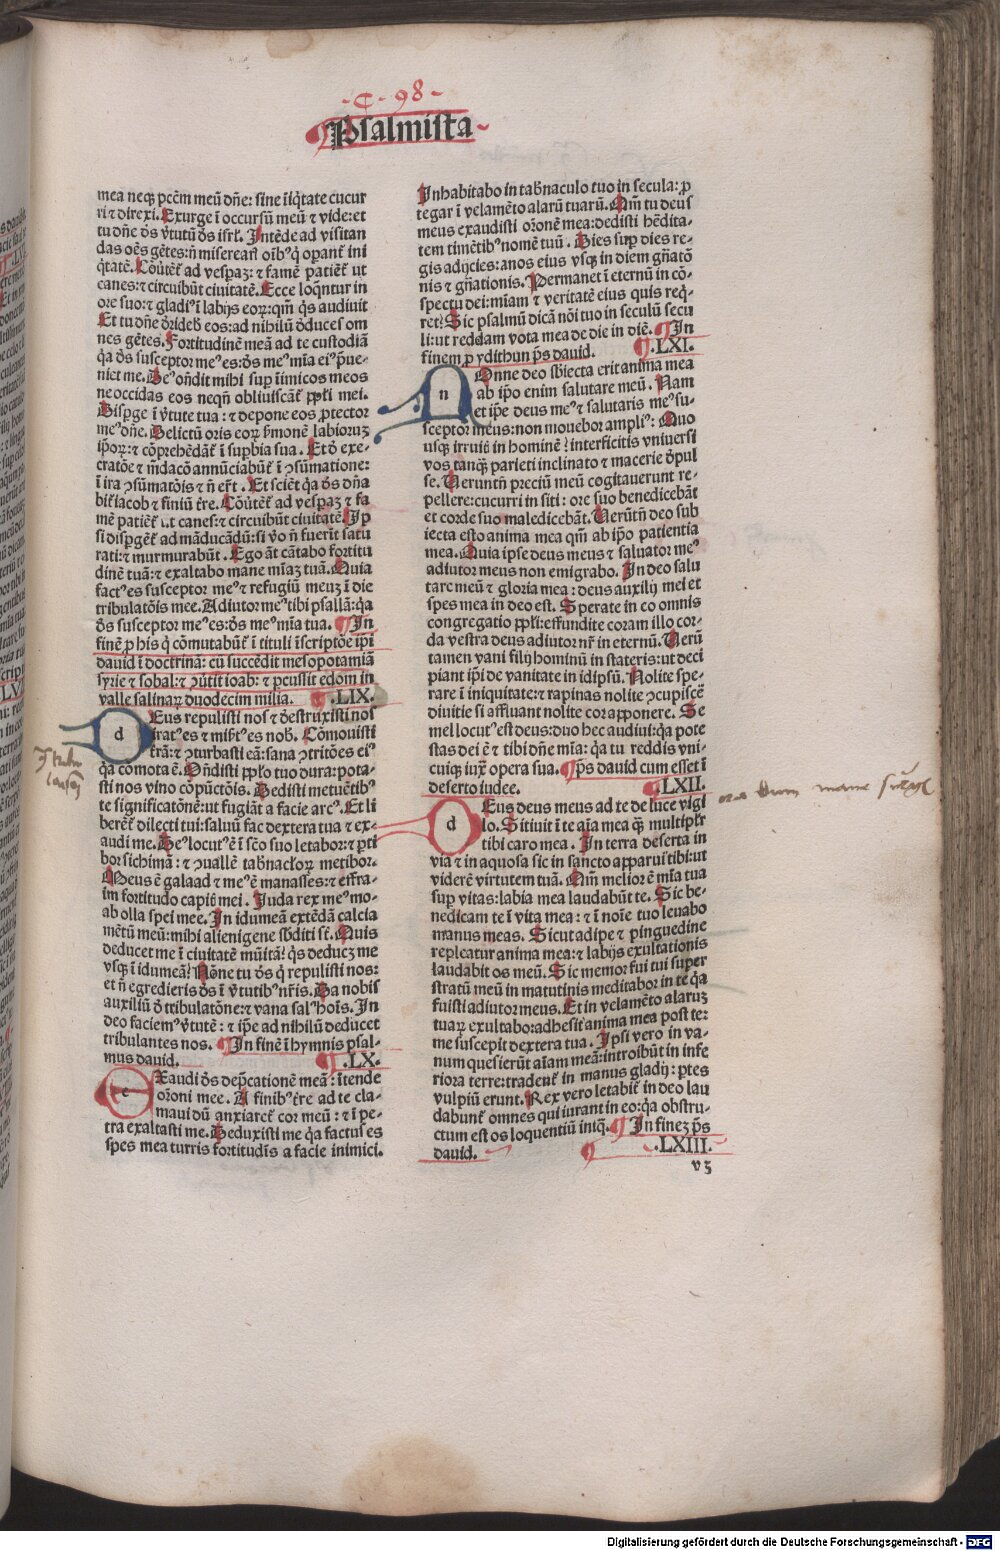 ·C· 98·
Psalmista
mea neqꝫ pctm̄ meū dn̄e: sine īiq̄tate cucur
ri ⁊ direxi. Exurge ī occursū meū ⁊ vide: et
tu dn̄e ds̄ v̄tutū ds̄ isrl̄. Intēde ad visitan
das oēs gētes: nō misereari oībꝰ q̇ operant̄ ini
q̄tatē. Cōuertēt̄ ad vesperaꝫ: ⁊ famē patiēt̄ ut
canes: ⁊ circuibūt ciuitatē. Ecce loq̄ntur in
ore suo: ⁊ gladiꝰ ī labijs eoꝝ: qm̄ q̇s audiuit
Et tu dn̄e d̄rideb̄ eos: ad nihilū d̄duces om
nes gētes. Fortitudinē meā ad te custodiā
q̇a ds̄ susceptor meꝰ es: ds̄ meꝰ mīa eiꝰ p̄ue⸗
niet me. Deꝰ ondit mihi suꝑ īimicos meos
ne occidas eos neqn̄ obliuiscāt̄ ppl̄i mei.
Disꝑge ī v̄tute tua: ⁊ depone eos ꝓtector
meꝰ dn̄e. Delictū oris eoꝝ ẜmonē labioruꝫ
ip̄oꝝ: ⁊ cōprehēdāt̄ ī suꝑbia sua. Et d̄ exe⸗
cratōe ⁊ mēdacō annūciabūt̄ ī ꝯsūmatione:
ī ira ꝯsūmatōis ⁊ nō er̄t. Et sciēt q̇a ds̄ dn̄a
bit̄ iacob ⁊ finiū tr̄e. Cōuertēt̄ ad vesperaꝫ ⁊ fa
mē patiēt̄ ut canes: ⁊ circuibūt ciuitatē. Ip
si disꝑgēt̄ ad māducādū: si vo nō fuerīt satu
rati: ⁊ murmurabūt. Ego āt cātabo fortitu
dinē tuā: ⁊ exaltabo mane mīaꝫ tuā. Quia
factꝰ es susceptor meꝰ ⁊ refugiū meuꝫ ī die
tribulatōis mee. Adiutor meꝰ tibi psallā: q̇a
ds̄ susceptor meꝰ es: ds̄ meꝰ mīa tua. In
finē ꝓ his q̇ cōmutabūt̄ ī tituli īscriptōe ip̄i
dauid ī doctrinā: cū succēdit mesopotamiā
syrie ⁊ sobal: ⁊ ꝯūtit ioab: ⁊ ꝑcussit edom in
valle salinaꝝ duodecim milia. .LIX.
d Eus repulisti nos ⁊ d̄struxisti nos
iratꝰ es ⁊ misertꝰ es nob̄. Cōmouisti
tr̄ā: ⁊ ꝯturbasti eā: sana ꝯtritōes eiꝰ
q̇a cōmota ē. Ondisti pplo tuo dura: pota⸗
sti nos vino cōpūctōis. Dedisti metuētibꝰ
te significatōnē: ut fugiāt a facie arcꝰ. Et li
berēt̄ dilecti tui: saluū fac dextera tua ⁊ ex⸗
audi me. Deꝰ locutꝰ ē ī sc̄o suo letabor: ⁊ ꝑti
bor sichimā: ⁊ ꝯuallē tabn̄acloꝝ metibor.
Meus ē galaad ⁊ meꝰ ē manasses: ⁊ effra⸗
im fortitudo capit̄ mei. Iuda rex meꝰ mo⸗
ab olla spei mee. In idumeā extēdā calcia
mētū meū: mihi alienigene sb̄diti st̄. Quis
deducet me ī ciuitatē mūitā: q̇s deducꝫ me
vsqꝫ ī idumeā? Nōne tu ds̄ q̇ repulisti nos:
et nō egredieris ds̄ ī v̄tutibꝰ nr̄is. Da nobis
auxiliū d̄ tribulatōne: ⁊ vana salꝰ hoīs. In
deo faciemꝰ v̄tutē: ⁊ ip̄e ad nihilū deducet
tribulantes nos. In finē ī hymnis psal⸗
mus dauid. .LX.
e Xaudi ds̄ dep̄cationē meā: ītende
orōni mee. A finibꝰ tr̄e ad te cla⸗
maui dū anxiaret̄ cor meū: ⁊ ī pe⸗
tra exaltasti me. Deduxisti me q̇a factus es
spes mea turris fortitudīs a facie inimici.
Inhabitabo in tabn̄aculo tuo in secula: ꝓ
tegar ī velamēto alarū tuarū. Qm̄ tu deus
meus exaudisti orōnē mea: dedisti hēdita⸗
tem timētibꝰ nomē tuū. Dies suꝑ dies re⸗
gis adijcies: anos eius vsqꝫ in diem gn̄atō
nis ⁊ gn̄ationis. Permanet ī eternū in cō⸗
spectu dei: mīam ⁊ veritatē eius quis reqͥ⸗
ret: Sic psalmū dicā nōi tuo in seculū secu
li: ut reddam vota mea de die in diē. In
finem ꝓ ydithun ps̄ dauid. .LXI.
n Onne deo sb̄iecta erit anima mea
ab ip̄o enim salutare meū. Nam
et ip̄e deus meꝰ ⁊ salutaris meꝰ su⸗
sceptor meus: non mouebor ampliꝰ: Quo
usqꝫ irruit̄ in hominē? interficitis vniuersi
vos tanqꝫ parieti inclinato ⁊ macerie d̄pul
se. Veruntn̄ preciū meū cogitauerunt re⸗
pellere: cucurri in siti: ore suo benedicebāt
et corde suo maledicebāt. Verūtn̄ deo sub
iecta esto anima mea qm̄ ab ip̄o patientia
mea. Quia ipse deus meus ⁊ saluator meꝰ
adiutor meus non emigrabo. In deo salu
tare meū ⁊ gloria mea: deus auxilij mei et
spes mea in deo est. Sperate in eo omnis
congregatio ppl̄i: effundite coram illo cor⸗
da vestra deus adiutor nr̄ in eternū. Verū
tamen vani filij hominū in stateris: ut deci
piant ip̄i de vanitate in idip̄sū. Nolite spe⸗
rare ī iniquitate: ⁊ rapinas nolite ꝯcupiscē
diuitie si affluant nolite cor apponere. Se
mel locutꝰ est deus: duo hec audiui: q̇a pote
stas dei ē ⁊ tibi dn̄e mīa: q̇a tu reddis vni⸗
cuiqꝫ iuxͣ opera sua. ps̄ dauid cum esset ī
deserto iudee. .LXII.
d Eus deus meus ad te de luce vigi
lo. Sitiuit ī te aīa mea qꝫ multipl̄r
tibi caro mea. In terra deserta in
via ⁊ in aquosa sic in sancto apparui tibi: ut
viderē virtutem tuā. Qm̄ melior ē mīa tua
suꝑ vitas: labia mea laudabūt te. Sic be⸗
nedicam te ī vita mea: ⁊ ī noīe tuo leuabo
manus meas. Sicut adipe ⁊ pinguedine
repleatur anima mea: ⁊ labijs exultationis
laudabit os meū. Sic memor fui tui super
stratū meū in matutinis meditabor in te q̇a
fuisti adiutor meus. Et in velamēto alaruꝫ
tuaꝝ exultabo: adhesit anima mea post te:
me suscepit dextera tua. Ipsi vero in va⸗
num quesierūt aīam meā: introibūt in infe
riora terre: tradent̄ in manus gladij: ꝑtes
vulpiū erunt. Rex vero letabit̄ in deo lau
dabunt̄ omnes qui iurant in eo: q̇a obstru⸗
ctum est os loquentiū iniq̄. In fineꝫ ps̄
dauid. .LXIII.
v3
Digitalisierung gefördert durch die Deutsche Forschungsgemeinschaft - DFG